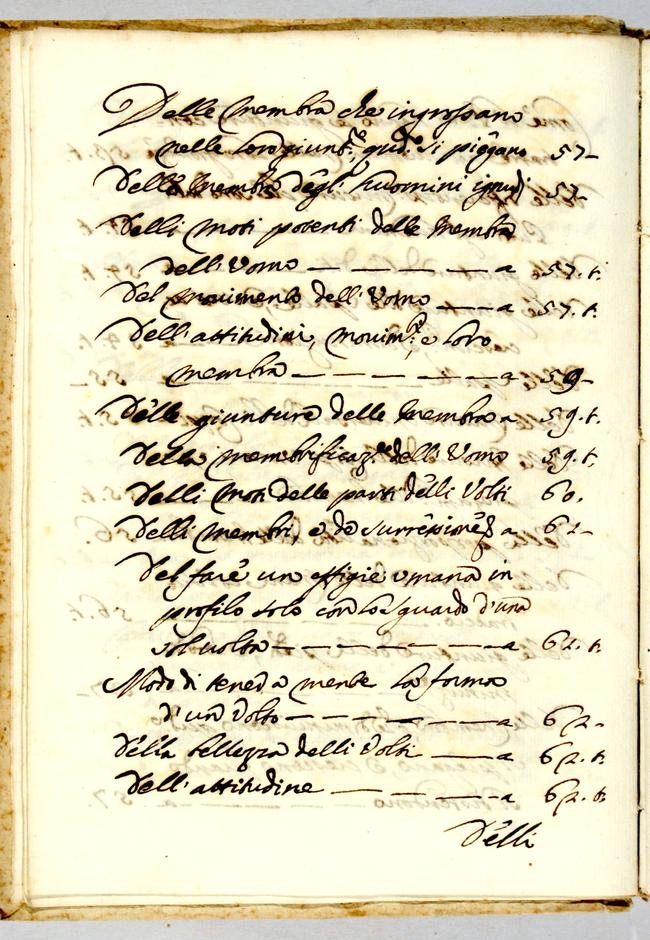 Delle membra che ingrossano
nelle loro giunt.e, qud.o si piegano 57-
Delle membra degl' huomini ignudi 57-
Delli moti potenti delle membra
dell' Vomo — — — — — a 57.t.
Del movimento dell' Vomo — — a 57.t.
Dell' attitudini, movim.ti, e loro
membra — — — — — a 59-
Delle giunture delle membra a 59.t.
Della membrificaz.ne dell' Vomo 59.t.
Delli moti delle parti delli Volti 60.
Delli membri, e de a 61-
Del fare un effigie umana in
profilo solo con lo sguardo d'una
sol volta — — — — — a 61.t.
Modo di tener a mente la forma
d'un Volto — — — — — a 62-
Della bellezza delli Volti — a 62.t.
Dell' attitudine — — — — a 62.t.
Delli